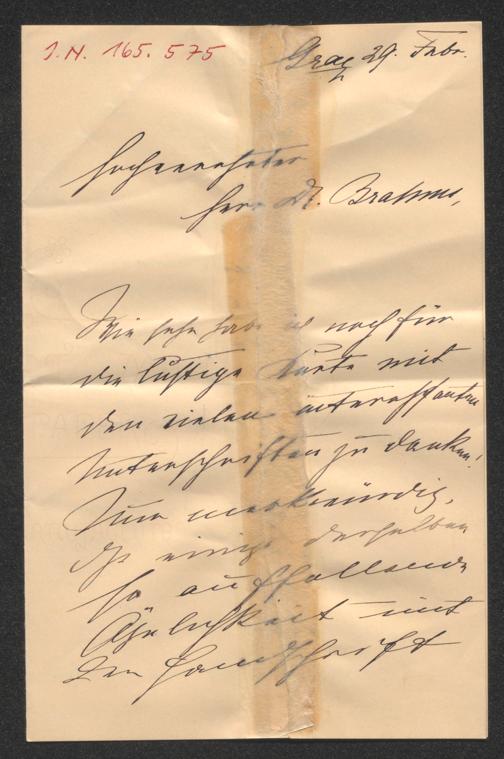 I.N. 165.575
Graz 29. Febr.
Hochverehrter
Herr Dr. Brahms,
Wie sehr habe ich noch für
die lustige Karte mit
den vielen interessanten
Unterschriften zu danken!
Nur merkwürdig,
daß einige derselben
so auffallende
Ähnlichkeit mit
der Handschrift